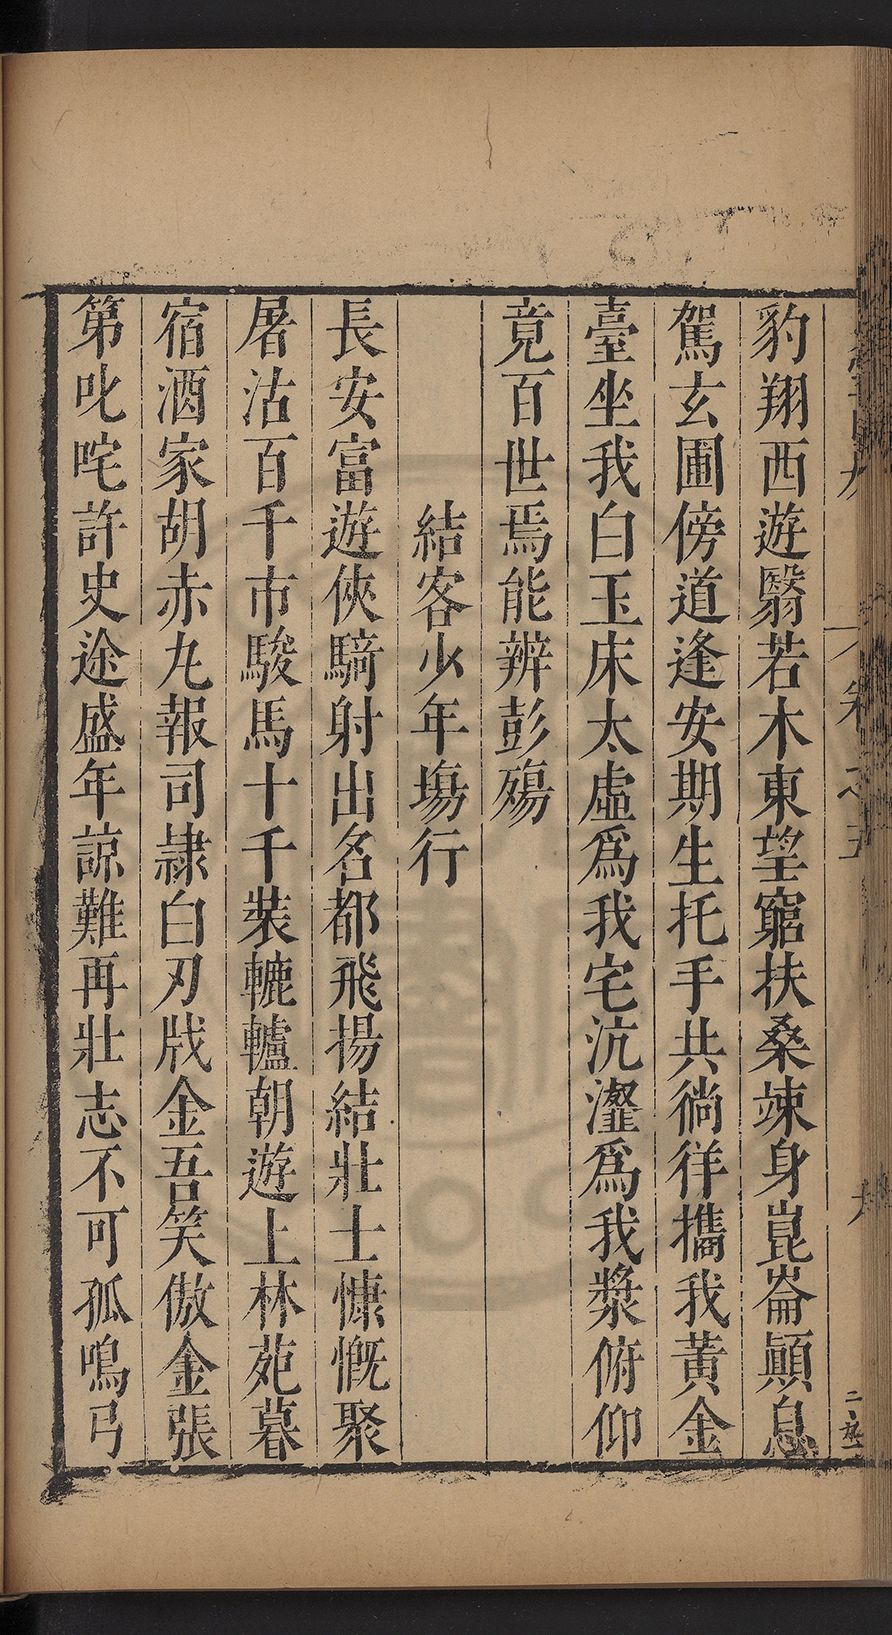 豹翔西遊翳若木東望窮扶桑竦身崑崙顚息
駕玄圃傍道逢安期生托手共徜徉攜我黃金
臺坐我白玉床太虛爲我宅沆瀣爲我漿俯仰
竟百世焉能辨彭殤
結客少年塲行
長安富遊俠騎射出名都飛揚結壯士慷慨聚
屠沽百千市駿馬十千裝轆轤朝遊上林苑暮
宿酒家胡赤丸報司隷白刃戕金吾笑傲金張
第叱咤許史途盛年諒難再壯志不可孤鳴弓